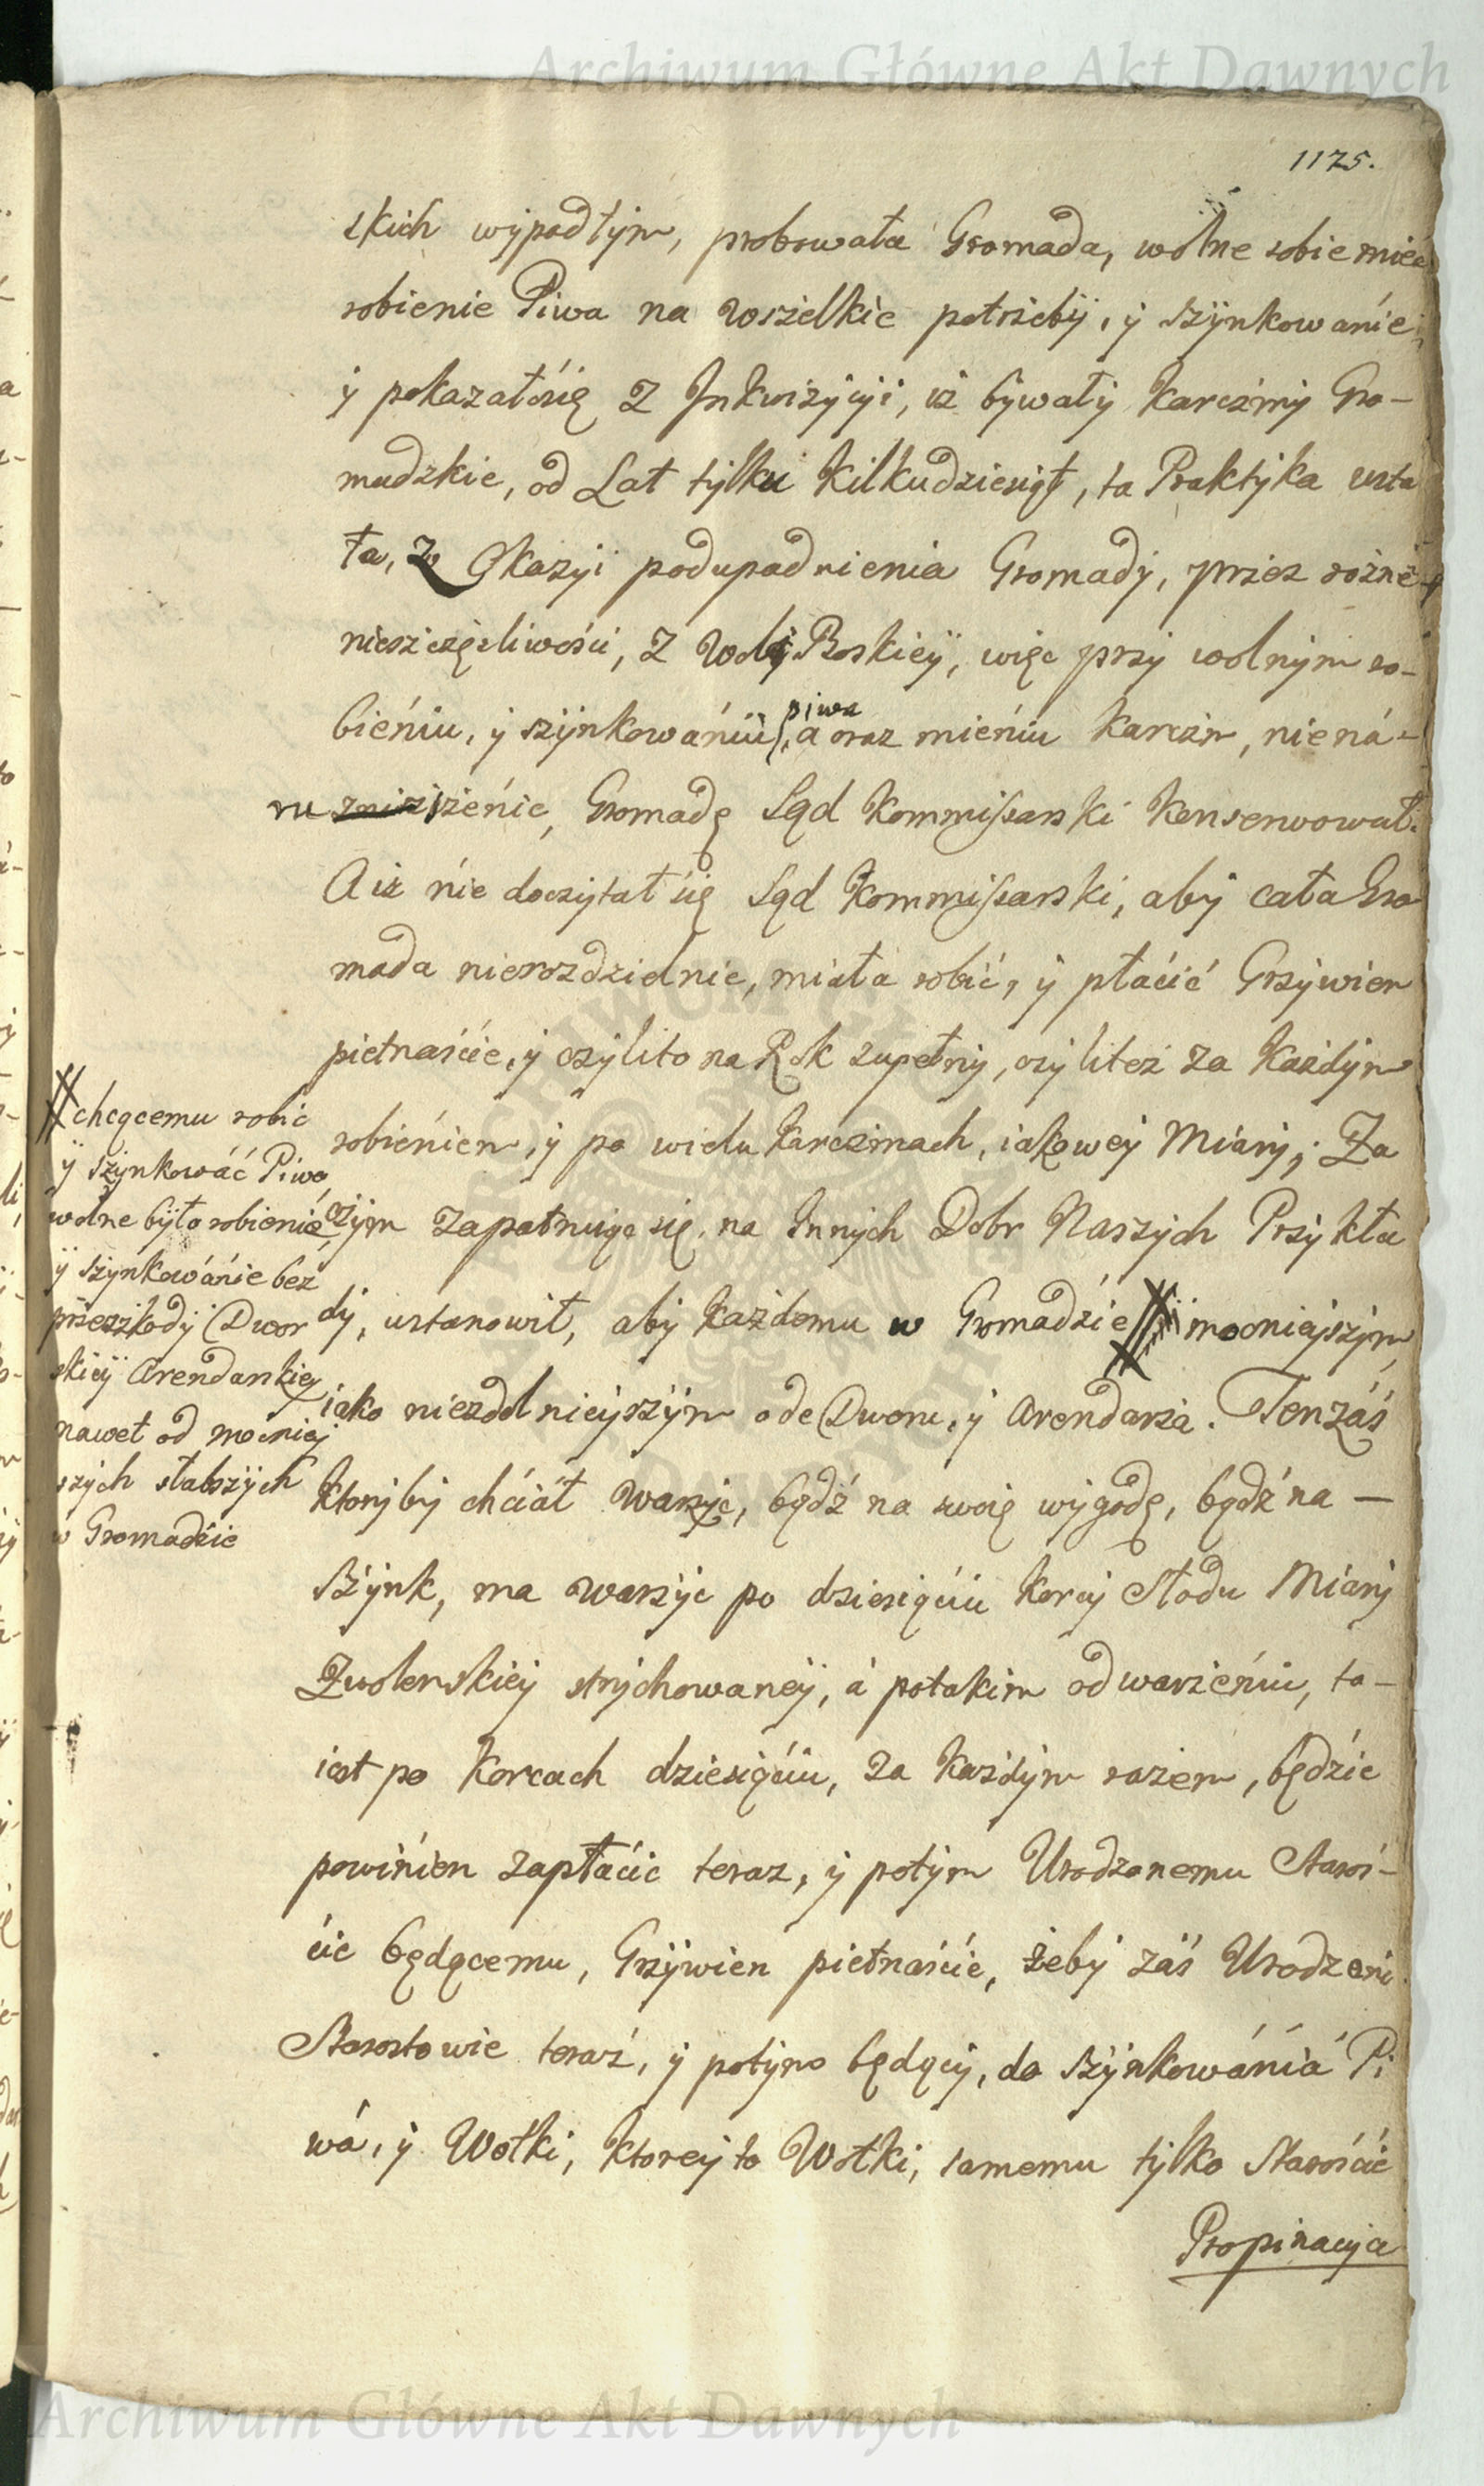 1125.
skich wypadłym, probowała Gromada, wolne sobie mieć
robienie Piwa na wszelkie potrzeby, y szynkowánie,
y pokazałósię z Jnkwizycyi, iż bywały Karczmy Gro-
madzkie, od Lat tylku kilkudziesiąt, ta Praktyka usta
ła, z Okazyi podupadnienia Gromady, przez rożne
nieszczęsliwośći, z Woli Boskiey, więc przy wolnym ro-
bieńiu, y szynkowáńiu piwa, a oraz mieńiu karczm, niená-
ru zniszżeńie, Gromadę Sąd Kommissarski Konserwował.
A iż nie doczytał się Sąd Kommissarski, aby cała Gro
mada nierozdzielnie, miała robić, y płaćić Grzywien
pietnaśćie, y czylito na Rok zupełny, czyliteż za Każdym
robieńiem, y po wielu karczmach, iakowey Miary; Za
czym zapatruiąc się, na Innych Dobr Naszych Przykła
dy, ustanowił, aby każdemu w Gromadźie # mocnieyszym,
iako niezdolnieyszym ode Dworu, y Arendarza. Tenzáś
ktoryby chćiáł warzyc, bądź na swoię wygodę, bądź na —
szynk, ma warzyc po dziesiąćiu korcy Słodu Miary
Zwolenskiey strychowaney, á potakim odwarzeńiu, to-
iest po Korcach dziesiąćiu, za każdym razem, będźie
powińien zapłaćic teraz, y potym Urodzonemu Staroś-
ćie będącemu, Grzywien pietnaśćie, żeby záś Urodzeni
Starostowie teraź, y potym będący, do szynkowáńiá Pi
wá, y Wotki, ktorey to Wotki, samemu tylko Starośćie
Propinacya
# chcącemu robic
y szynkowáć Piwo
wolne było robienie
y szynkowáńie bez
przeszkody Dwor
skiey Arendarskiey
nawet od mocniey
szych słabszych
w Gromadźie
Archiwum Główne Akt Dawnych
Archiwum Główne Akt Dawnych